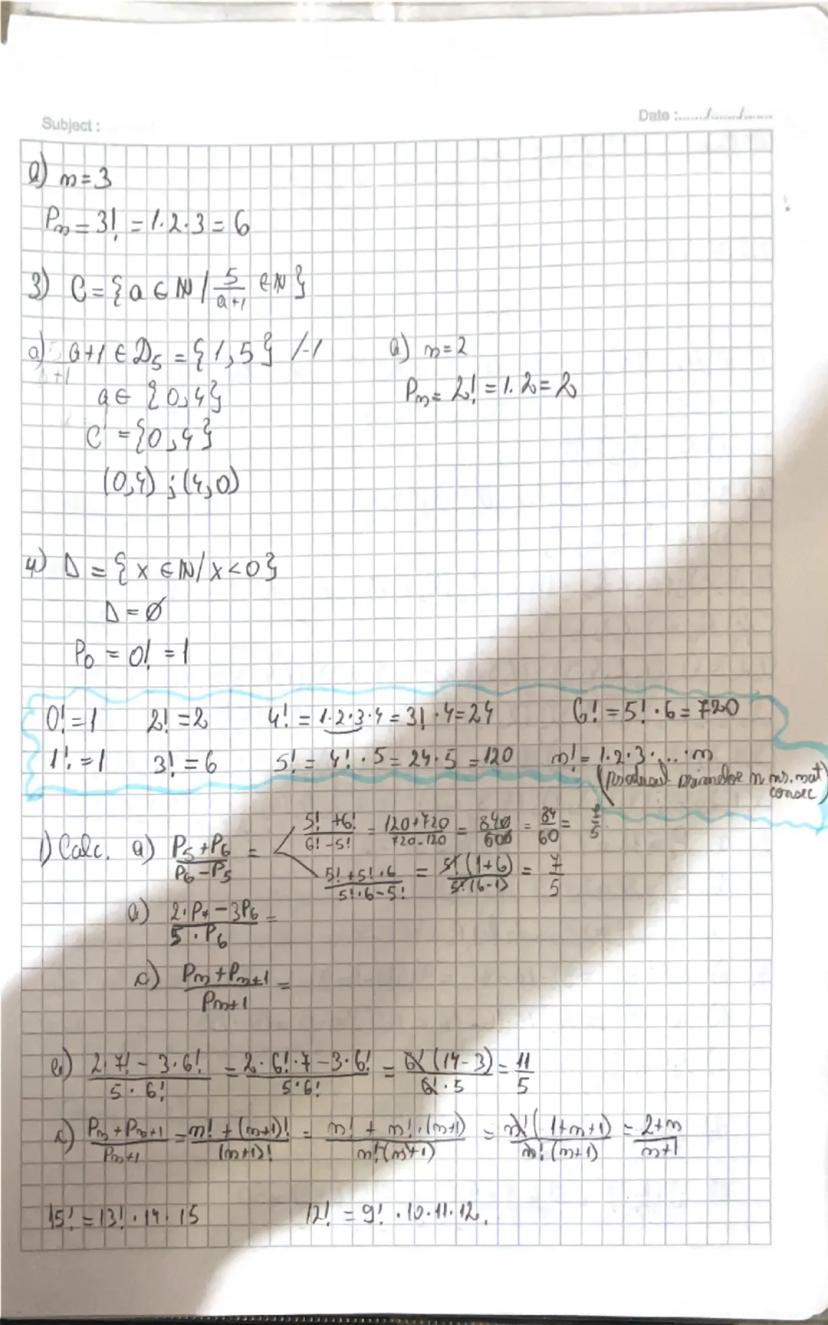 Subject :
Date :....../......./.......
b) n=3
Pn = 3! = 1·2·3 = 6
3) C = {a ∈ N / 5/(a+1) ∈ N}
a) a+1 ∈ D5 = {1,5} /-1
a ∈ {0,4}
C = {0,4}
(0,4) ; (4,0)
b) n=2
Pn = 2! = 1·2 = 2
4) D = {x ∈ N / x<0}
D = Ø
P0 = 0! = 1
0! = 1 2! = 2 4! = 1·2·3·4 = 3!·4 = 24 6! = 5!·6 = 720
1! = 1 3! = 6 5! = 4!·5 = 24·5 = 120 n! = 1·2·3·...·n
(produsul primelor n nr. nat
consec
1) Calc. a) (P5+P6)/(P6-P5) = (5!+6!)/(6!-5!) = (120+720)/(720-120) = 840/600 = 84/60 = 7/5
(5!+5!·6)/(5!·6-5!) = 5!(1+6)/5!(6-1) = 7/5
b) (2·P7 - 3P6)/(5·P6) =
c) (Pn + Pn+1)/Pn+1 =
b) (2·7! - 3·6!)/(5·6!) = (2·6!·7 - 3·6!)/(5·6!) = 6!(14-3)/(6!·5) = 11/5
c) (Pn + Pn+1)/Pn+1 = (n! + (n+1)!)/(n+1)! = (n! + n!·(n+1))/(n!(n+1)) = n!(1+n+1)/(n!(n+1)) = (2+n)/(n+1)
15! = 13!·14·15 12! = 9!·10·11·12,